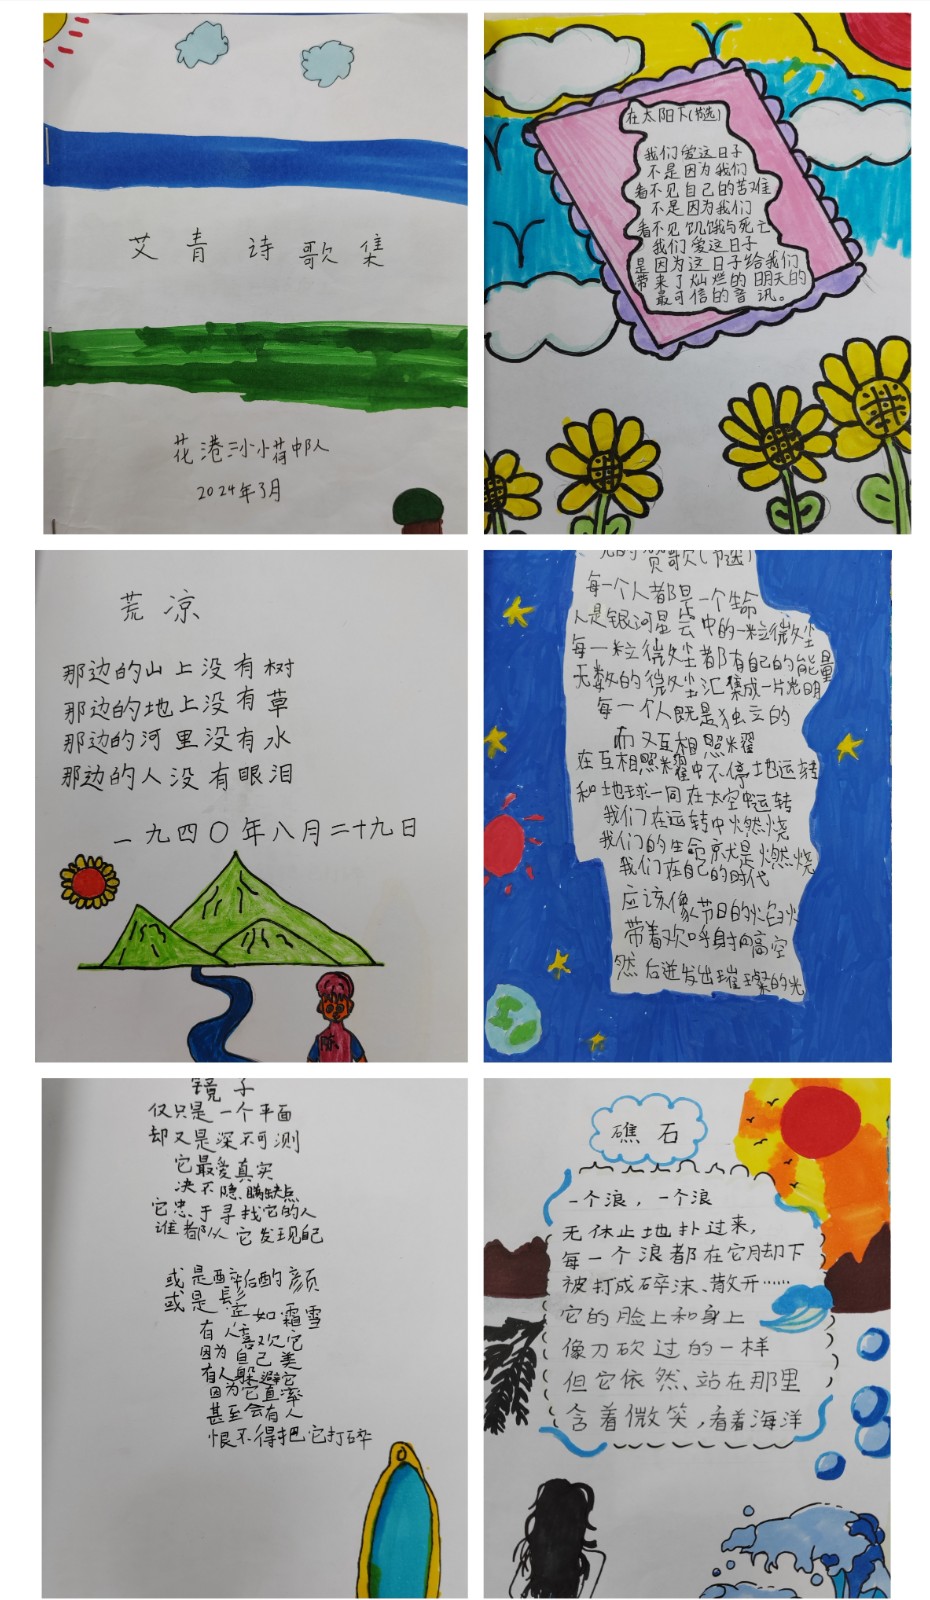 艾青诗歌集
花港三小小荷中队
2024年3月
在太阳下(节选)
我们爱这日子
不是因为我们
看不见自己的苦难
不是因为我们
看不见饥饿与死亡
我们爱这日子
是因为这日子给我们
带来了灿烂的明天的
最可信的音讯。
荒凉
那边的山上没有树
那边的地上没有草
那边的河里没有水
那边的人没有眼泪
一九四〇年八月二十九日
陈
光的赞歌(节选)
每一个人都是一个生命
人是银河星云中的一粒微尘
每一粒微尘都有自己的能量
无数的微尘汇集成一片光明
每一个人既是独立的
而又互相照耀
在互相照耀中不停地运转
和地球一同在太空中运转
我们在运转中燃烧
我们的生命就是燃烧
我们在自己的时代
应该像节日的焰火
带着欢呼射向高空
然后迸发出璀璨的光
镜子
仅只是一个平面
却又是深不可测
它最爱真实
决不隐瞒缺点
它忠于寻找它的人
谁都从它发现自己
或是醉后酡颜
或是鬓如霜雪
有人喜欢它
因为自己美
有人躲避它
因为它直率
甚至会有人
恨不得把它打碎
礁石
一个浪，一个浪
无休止地扑过来，
每一个浪都在它脚下
被打成碎沫、散开……
它的脸上和身上
像刀砍过的一样
但它依然站在那里
含着微笑，看着海洋